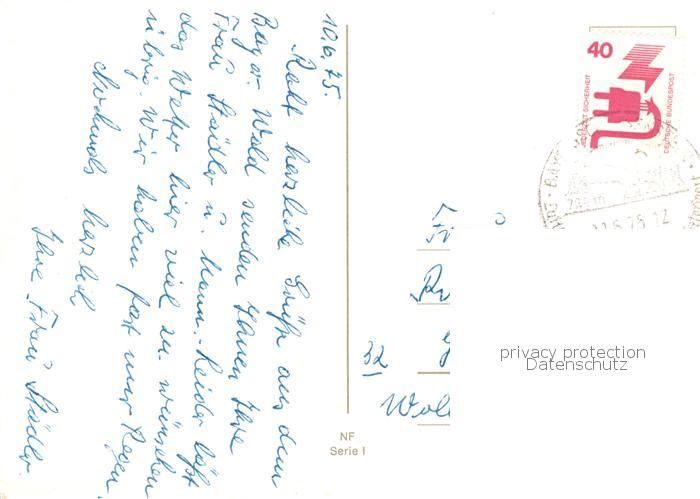 10.6.75.
Recht herzliche Grüße aus dem
Bayer. Wald senden Ihnen Ihre
Frau Städler u. Mann. - Leider läßt
das Wetter hier viel zu wünschen
übrig. Wir haben fast nur Regen.
Nochmals herzlich
Ihre Frau Städler.
40
JEDERZEIT SICHERHEIT
DEUTSCHE BUNDESPOST
32
NF
Serie I
privacy protection
Datenschutz